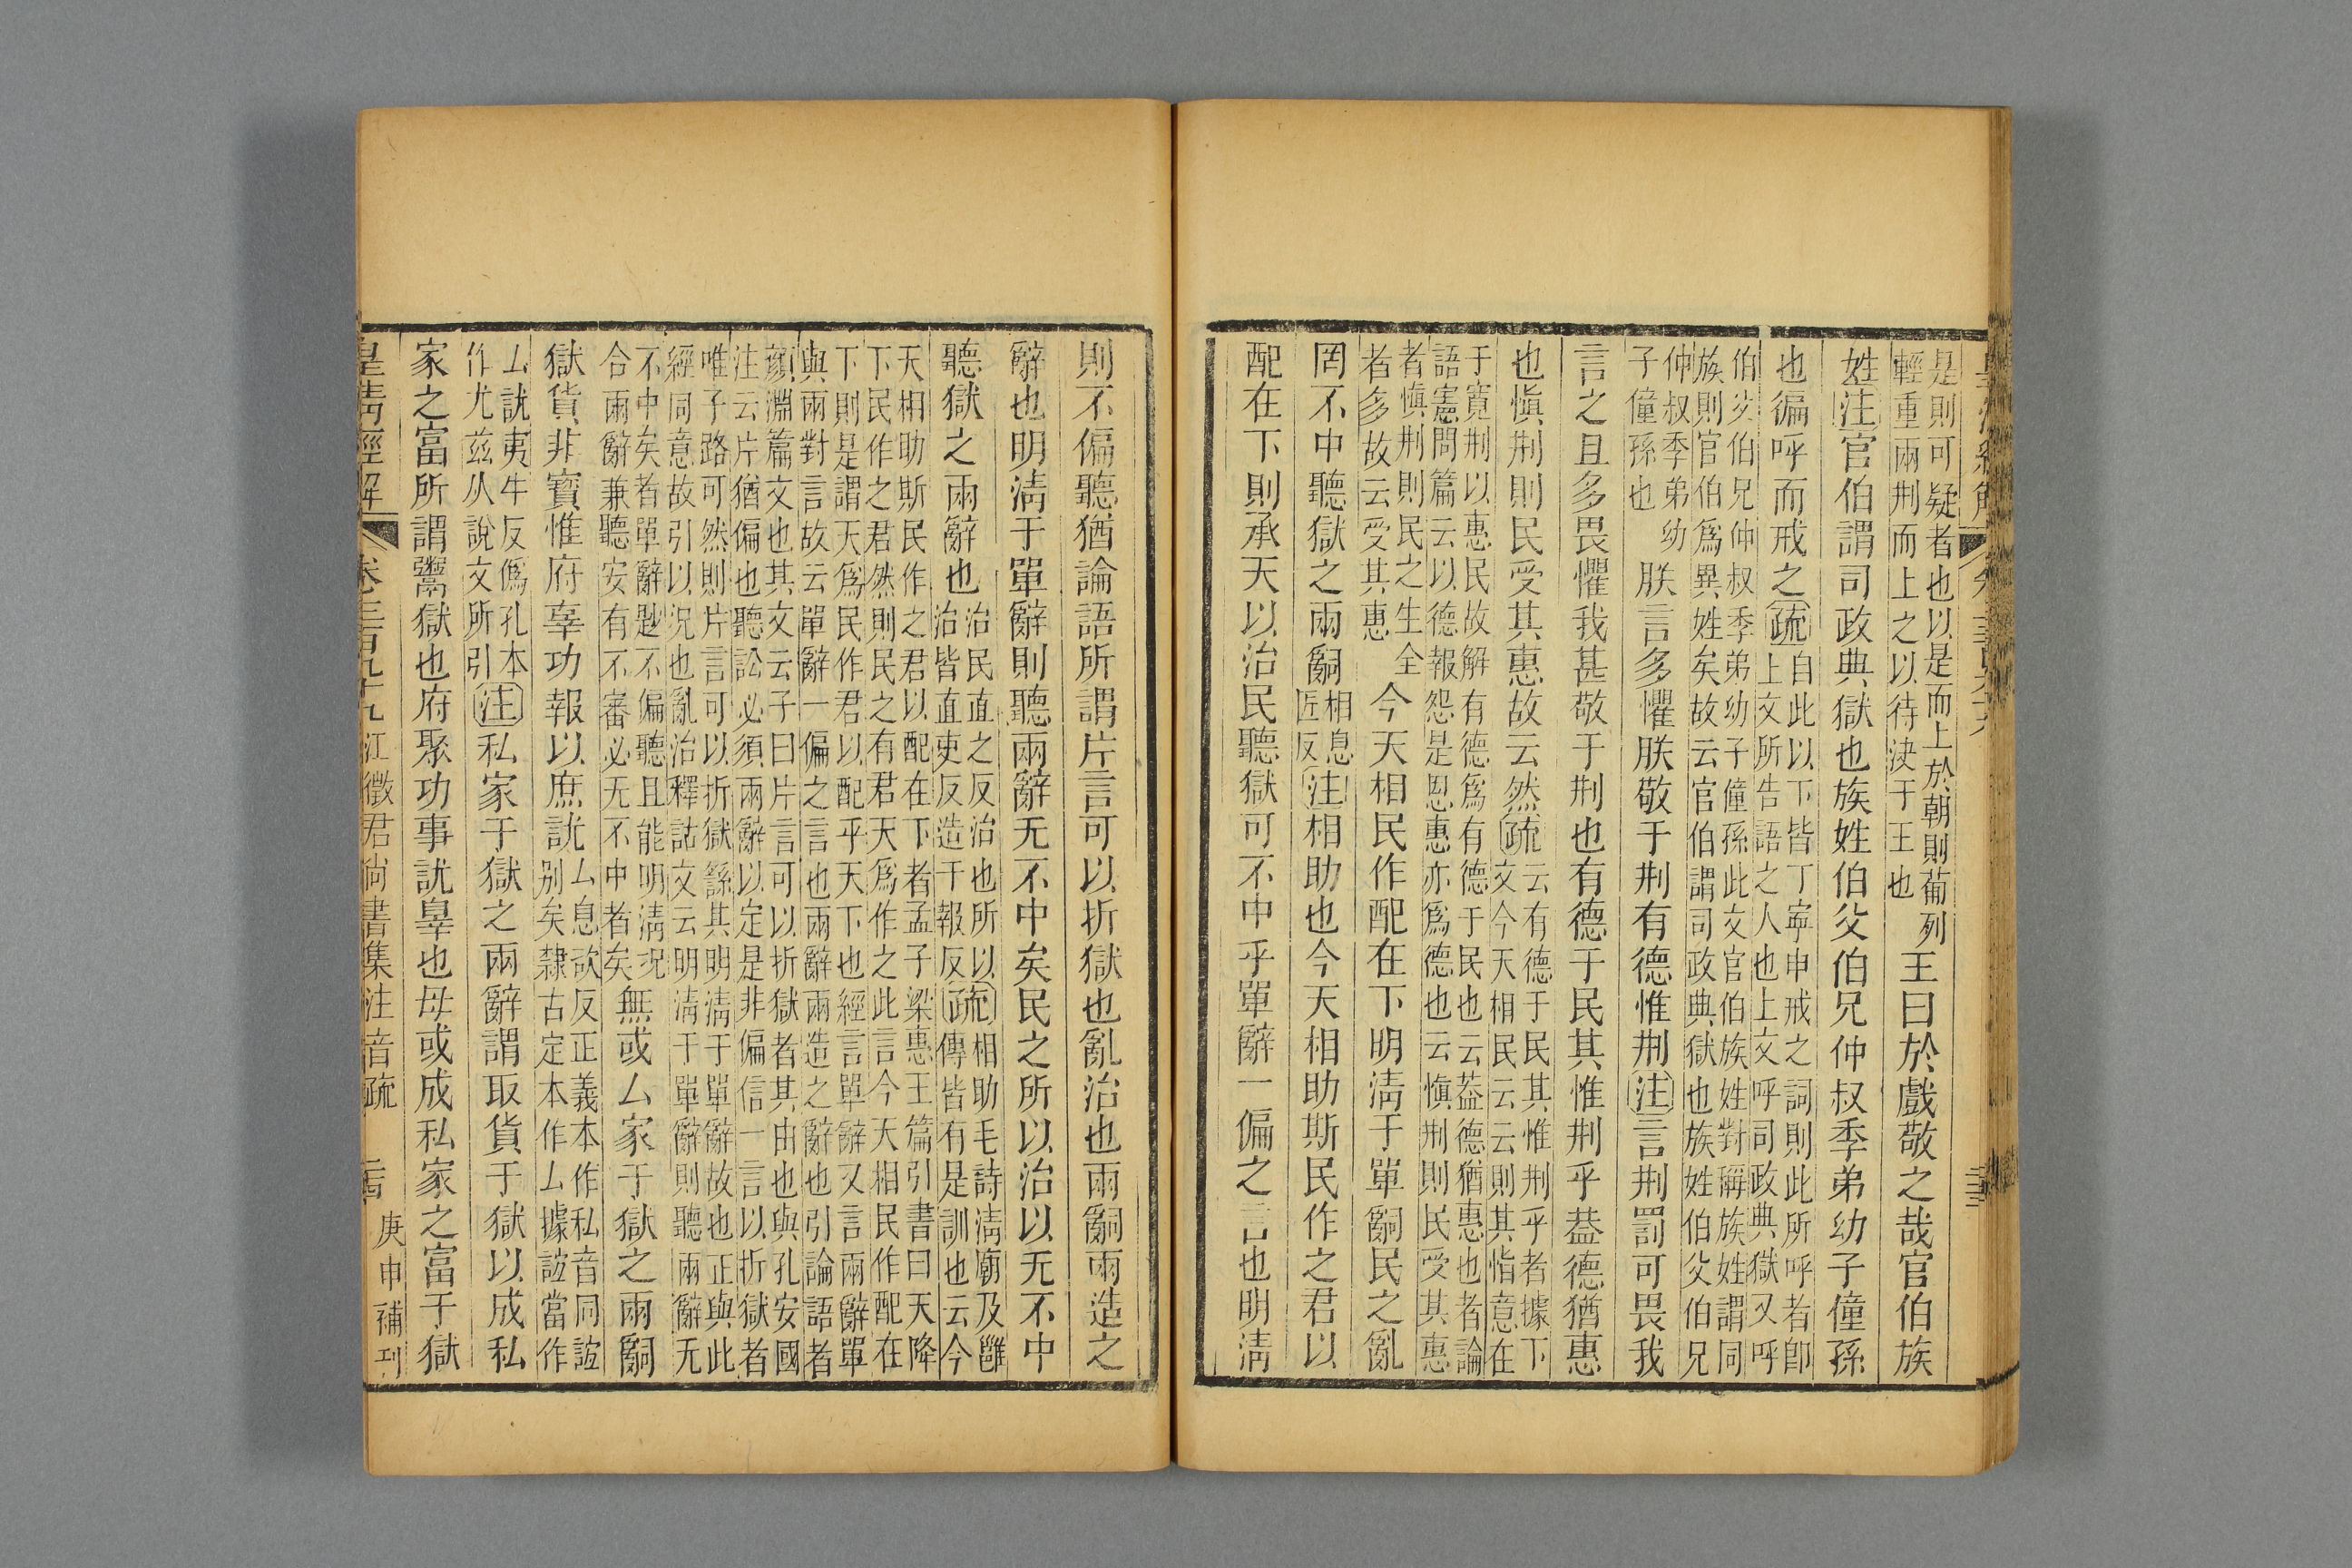 是則可疑者也以是而上於朝則葡列
輕重兩㓝而上之以待決于王也
王曰於戲敬之哉官伯族
姓注官伯謂司政典獄也族姓伯父伯兄仲叔季弟幼子僮孫
也徧呼而戒之疏
自此以下皆丁寧申戒之詞則此所呼者卽
上文所告語之人也上文呼司政典獄又呼
伯父伯兄仲叔季弟幼子僮孫此文官伯族姓對稱族姓謂同
族則官伯爲異姓矣故云官伯謂司政典獄也族姓伯父伯兄
仲叔季弟幼
子僮孫也
朕言多懼朕敬于㓝有德惟㓝注言㓝罰可畏我
言之且多畏懼我甚敬于㓝也有德于民其惟㓝乎葢德猶惠
也愼㓝則民受其惠故云然疏
云有德于民其惟㓝乎者據下
文今天相民云云則其恉意在
于寬㓝以惠民故解有德爲有德于民也云葢德猶惠也者論
語憲問篇云以德報怨是恩惠亦爲德也云愼㓝則民受其惠
者愼㓝則民之生全
者多故云受其惠
今天相民作配在下明淸于單嗣民之亂
罔不中聽獄之兩嗣
相息
匠反
注相助也今天相助斯民作之君以
配在下則承天以治民聽獄可不中乎單辭一偏之言也明淸
則不偏聽猶論語所謂片言可以折獄也亂治也兩嗣兩造之
辭也明淸于單辭則聽兩辭无不中矣民之所以治以无不中
聽獄之兩辭也
治民直之反治也所以
治皆直吏反造干報反
疏
相助毛詩淸廟及雝
傳皆有是訓也云今
天相助斯民作之君以配在下者孟子梁惠王篇引書曰天降
下民作之君然則民之有君天爲作之此言今天相民作配在
下則是謂天爲民作君以配乎天下也經言單辭又言兩辭單
與兩對言故云單辭一偏之言也兩辭兩造之辭也引論語者
顏淵篇文也其文云子曰片言可以折獄者其由也與孔安國
注云片猶偏也聽訟必須兩辭以定是非偏信一言以折獄者
唯子路可然則片言可以折獄繇其明淸于單辭故也正與此
經同意故引以況也亂治釋詁文云明淸于單辭則聽兩辭无
不中矣者單辭尟不偏聽且能明淸況
合兩辭兼聽安有不審必无不中者矣
無或厶家于獄之兩嗣
獄貨非寶惟府辜功報以庶訧
厶息欬反正義本作私音同誼
别矣隸古定本作厶據誼當作
厶訧夷牛反僞孔本
作尤兹从說文所引
注私家于獄之兩辭謂取貨于獄以成私
家之富所謂鬻獄也府聚功事訧辠也毋或成私家之富于獄
皇淸經解
卷三百九十九江徵君尚書集注音疏
庚申補刊